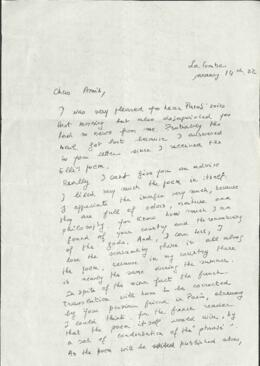 La Combe
January 14th 22
I was very pleased to hear voice
last morning but also disappointed you
had no news from me. Probably the
mail got lost because I answered
to your letter since I received the
poem.
Really I can't give you an advise
I liked very much the poem in itself.
I appreciate the images very much, because
they are full of colors, nature and
philosophy. You know how much I am
found of your country and the
of the gods. And, I can less, I
love the there is all along
the poem, because in my country there
is nearly the same during the summer.
In spite of the fact the french
translation will have to be corrected
by your friend in Paris,
I could think for the french reader
that the poem itself would win, by
a sort of condensation of the "phrases".
As the poem will be published alone,